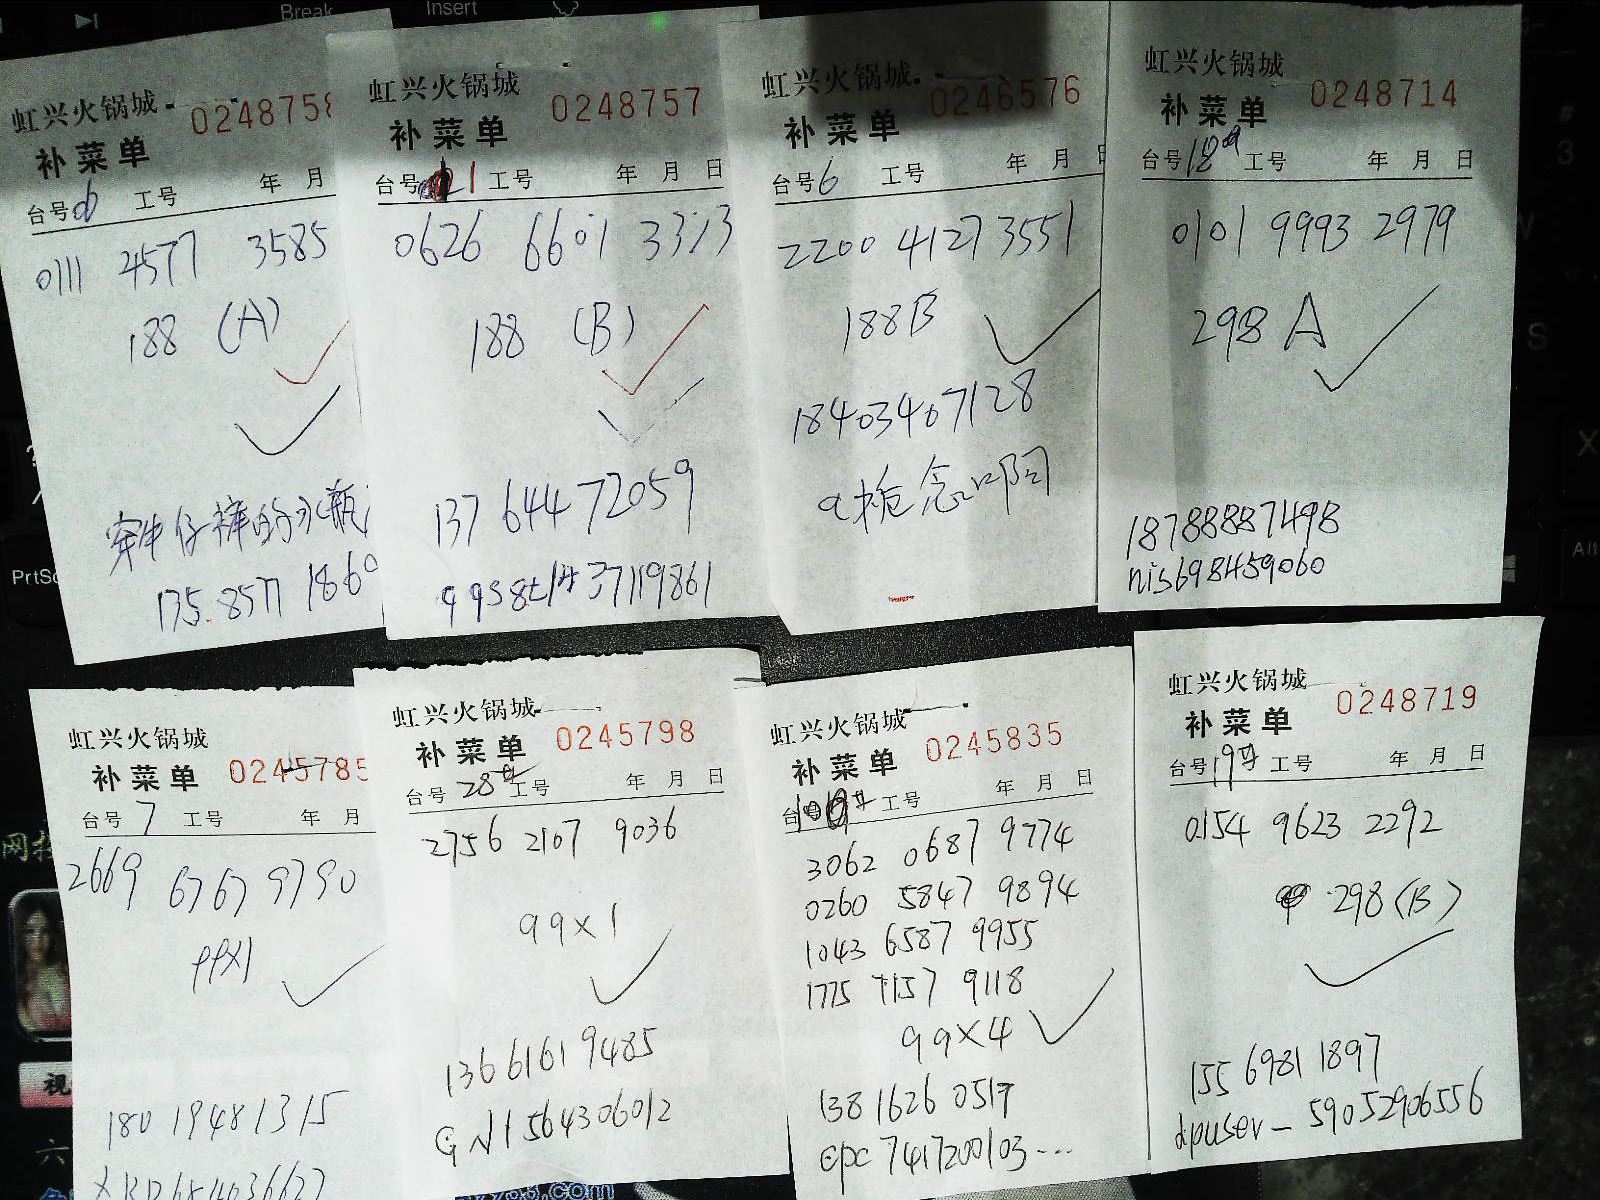 Break
Insert
虹兴火锅城
024875
补菜单
台号 工号 年 月
0111 4577 3585
188 (A)
穿牛仔裤的水瓶
175.8577 1860
虹兴火锅城
0248757
补菜单
台号 21 工号 年 月 日
0626 6601 3313
188 (B)
137 64472059
37119861
虹兴火锅城
0246576
补菜单
台号 6 工号 年 月 日
2200 4127 3551
188B
18403407128
虹兴火锅城
0248714
补菜单
台号 18 工号 年 月 日
0101 9993 2979
298 A
18788887498
nis698459060
PrtSc
Alt
虹兴火锅城
0245785
补菜单
台号 7 工号 年 月
2669 6767 9790
99X1
180 19481315
虹兴火锅城
0245798
补菜单
台号 28 工号 年 月 日
2756 2107 9036
99X1
136 6161 9485
GN1564306012
虹兴火锅城
0245835
补菜单
台 工号 年 月 日
3062 0687 9774
0260 5847 9894
1043 6587 9955
1775 7157 9118
99X4
138 1626 0517
epc7417200103...
虹兴火锅城
0248719
补菜单
台号 19 工号 年 月 日
0154 9623 2292
298 (B)
155 6981 1897
dpuser_59052906556
视
六
.com